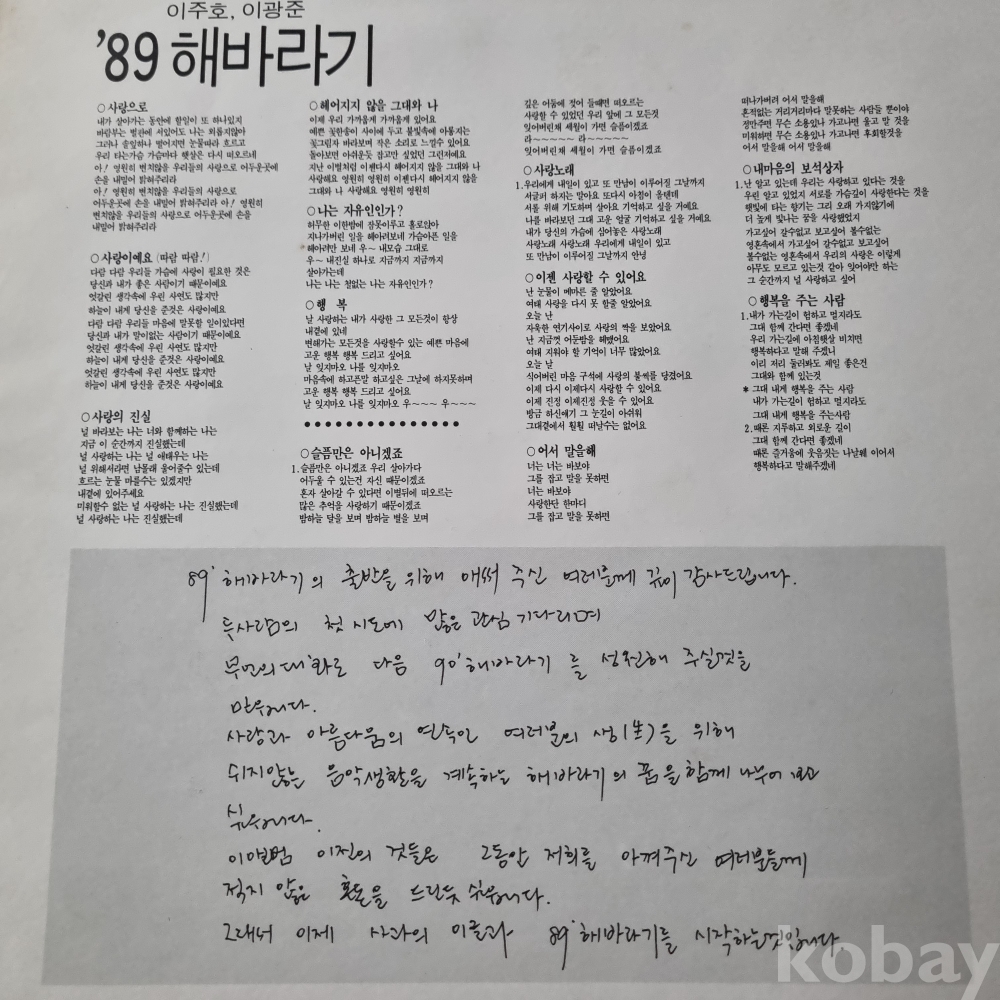 이주호, 이광준
'89 해바라기
○사랑으로
내가 살아가는 동안에 할일이 또 하나있지
바람부는 벌판에 서있어도 나는 외롭지않아
그러나 솔잎하나 떨어지면 눈물따라 흐르고
우리 타는가슴 가슴마다 햇살은 다시 떠오르네
아! 영원히 변치않을 우리들의 사랑으로 어두운곳에
손을 내밀어 밝혀주리라
아! 영원히 변치않을 우리들의 사랑으로
어두운곳에 손을 내밀어 밝혀주리라 아! 영원히
변치않을 우리들의 사랑으로 어두운곳에 손을
내밀어 밝혀주리라
○사랑이예요 (따람 따람!)
다람 다람 우리들 가슴에 사랑이 필요한 것은
당신과 내가 좋은 사람이기 때문이예요
엇갈린 생각속에 우린 사연도 많지만
하늘이 내게 당신을 준것은 사랑이예요
다람 다람 우리들 마음에 말못할 일이있다면
당신과 내가 말이없는 사람이기 때문이예요
엇갈린 생각속에 우린 사연도 많지만
하늘이 내게 당신을 준것은 사랑이예요
엇갈린 생각속에 우린 사연도 많지만
하늘이 내게 당신을 준것은 사랑이예요
○사랑의 진실
널 바라보는 나는 너와 함께하는 나는
지금 이 순간까지 진실했는데
널 사랑하는 나는 널 애태우는 나는
널 위해서라면 남몰래 울어줄수 있는데
흐르는 눈물 마를수는 있겠지만
내곁에 있어주세요
미워할수 없는 널 사랑하는 나는 진실했는데
널 사랑하는 나는 진실했는데
○헤어지지 않을 그대와 나
이제 우리 가까웁게 가까웁게 있어요
예쁜 꽃한송이 사이에 두고 불빛속에 아롱지는
꽃그림자 바라보며 작은 소리로 느낄수 있어요
돌아보면 아쉬운듯 잡고만 싶었던 그런지예요
지난 이별처럼 이젠다시 헤어지지 않을 그대와 나
사랑해요 영원히 영원히 이젠다시 헤어지지 않을
그대와 나 사랑해요 영원히 영원히
○나는 자유인인가?
허무한 이한밤에 잠못이루고 홀로앉아
지나가버린 일을 헤아려보네 가슴아픈 일을
헤아려만 보네 우～ 내모습 그대로
우～ 내진실 하나로 지금까지 지금까지
살아가는데
나는 나는 철없는 나는 자유인인가?
○행 복
날 사랑하는 내가 사랑한 그 모든것이 항상
내곁에 있네
변해가는 모든것을 사랑할수 있는 예쁜 마음에
고운 행복 행복 드리고 싶어요
날 잊지마오 나를 잊지마오
마음속에 하고픈말 하고싶은 그날에 하지못하며
고운 행복 행복 드리고 싶어요
날 잊지마오 나를 잊지마오 우～～～ 우～～～
○슬픔만은 아니겠죠
1. 슬픔만은 아니겠죠 우리 살아가다
어두울 수 있는건 자신 때문이겠죠
혼자 살아갈 수 있다면 이별뒤에 떠오르는
많은 추억을 사랑하기 때문이겠죠
밤하늘 달을 보며 밤하늘 별을 보며
깊은 어둠에 젖어 들때면 떠오르는
사랑할 수 있었던 우리 앞에 그 모든것
잊어버린채 세월이 가면 슬픔이겠죠
라～～～～～ 라～～～～～
잊어버린채 세월이 가면 슬픔이겠죠
○사랑노래
1. 우리에게 내일이 있고 또 만남이 이루어질 그날까지
서글퍼 하지는 말아요 또다시 아침이 올텐데
서롤 위해 기도하며 살아요 기억하고 싶을 거예요
나를 바라보던 그대 고운 얼굴 기억하고 싶을 거예요
내가 당신의 가슴에 심어놓은 사랑노래
사랑노래 사랑노래 우리에게 내일이 있고
또 만남이 이루어질 그날까지 안녕
○이젠 사랑할 수 있어요
난 눈물이 메마른 줄 알았어요
여태 사랑을 다시 못 할줄 알았어요
오늘 난
자욱한 연기사이로 사랑의 짝을 보았어요
난 지금껏 어둔밤을 헤맸어요
여태 지워야 할 기억이 너무 많았어요
오늘 난
식어버린 마음 구석에 사랑의 불씨를 당겼어요
이제 다시 이제다시 사랑할 수 있어요
이제 진정 이제진정 웃을 수 있어요
방금 하신얘기 그 눈길이 아쉬워
그대곁에서 훨훨 떠날수는 없어요
○어서 말을해
너는 너는 바보야
그를 잡고 말을 못하면
너는 바보야
사랑한단 한마디
그를 잡고 말을 못하면
떠나가버려 어서 말을해
흔적없는 거리거리마다 말못하는 사람들 뿐이야
정만주면 무슨 소용있나 가고나면 울고 말 것을
미워하면 무슨 소용있나 가고나면 후회할것을
어서 말을해 어서 말을해
○내마음의 보석상자
1. 난 알고 있는데 우리는 사랑하고 있다는 것을
우린 알고 있었지 서로를 가슴깊이 사랑한다는 것을
햇빛에 타는 향기는 그리 오래 가지않기에
더 높게 빛나는 꿈을 사랑했었지
가고싶어 갈수없고 보고싶어 볼수없는
영혼속에서 가고싶어 갈수없고 보고싶어
볼수없는 영혼속에서 우리의 사랑은 이렇게
아무도 모르고 있는것 같아 잊어야만 하는
그 순간까지 널 사랑하고 싶어
○행복을 주는 사람
1. 내가 가는길이 험하고 멀지라도
그대 함께 간다면 좋겠네
우리 가는길에 아침햇살 비치면
행복하다고 말해 주겠니
이리 저리 둘러봐도 제일 좋은건
그대와 함께 있는것
* 그대 내게 행복을 주는 사람
내가 가는길이 험하고 멀지라도
그대 내게 행복을 주는사람
2. 때론 지루하고 외로운 길이
그대 함께 간다면 좋겠네
때론 즐거움에 웃음짓는 나날톄 이어서
행복하다고 말해주겠네
89' 해바라기의 출반을 위해 애써 주신 여러분께 깊이 감사드립니다.
두사람의 첫 시도에 많은 관심 기다리며
무언의 대화로 다음 90' 해바라기를 성원해 주실것을
믿습니다.
사랑과 아름다움의 연속인 여러분의 생(生)을 위해
쉬지않는 음악생활을 계속하는 해바라기의 꿈을 함께 나누어 보고
싶습니다.
이앨범 이전의 것들은 그동안 저희를 아껴주신 여러분들께
적지 않은 혼돈을 드린듯 싶습니다.
그래서 이제 사과의 이글과 89' 해바라기를 시작하는것입니다.
kobay